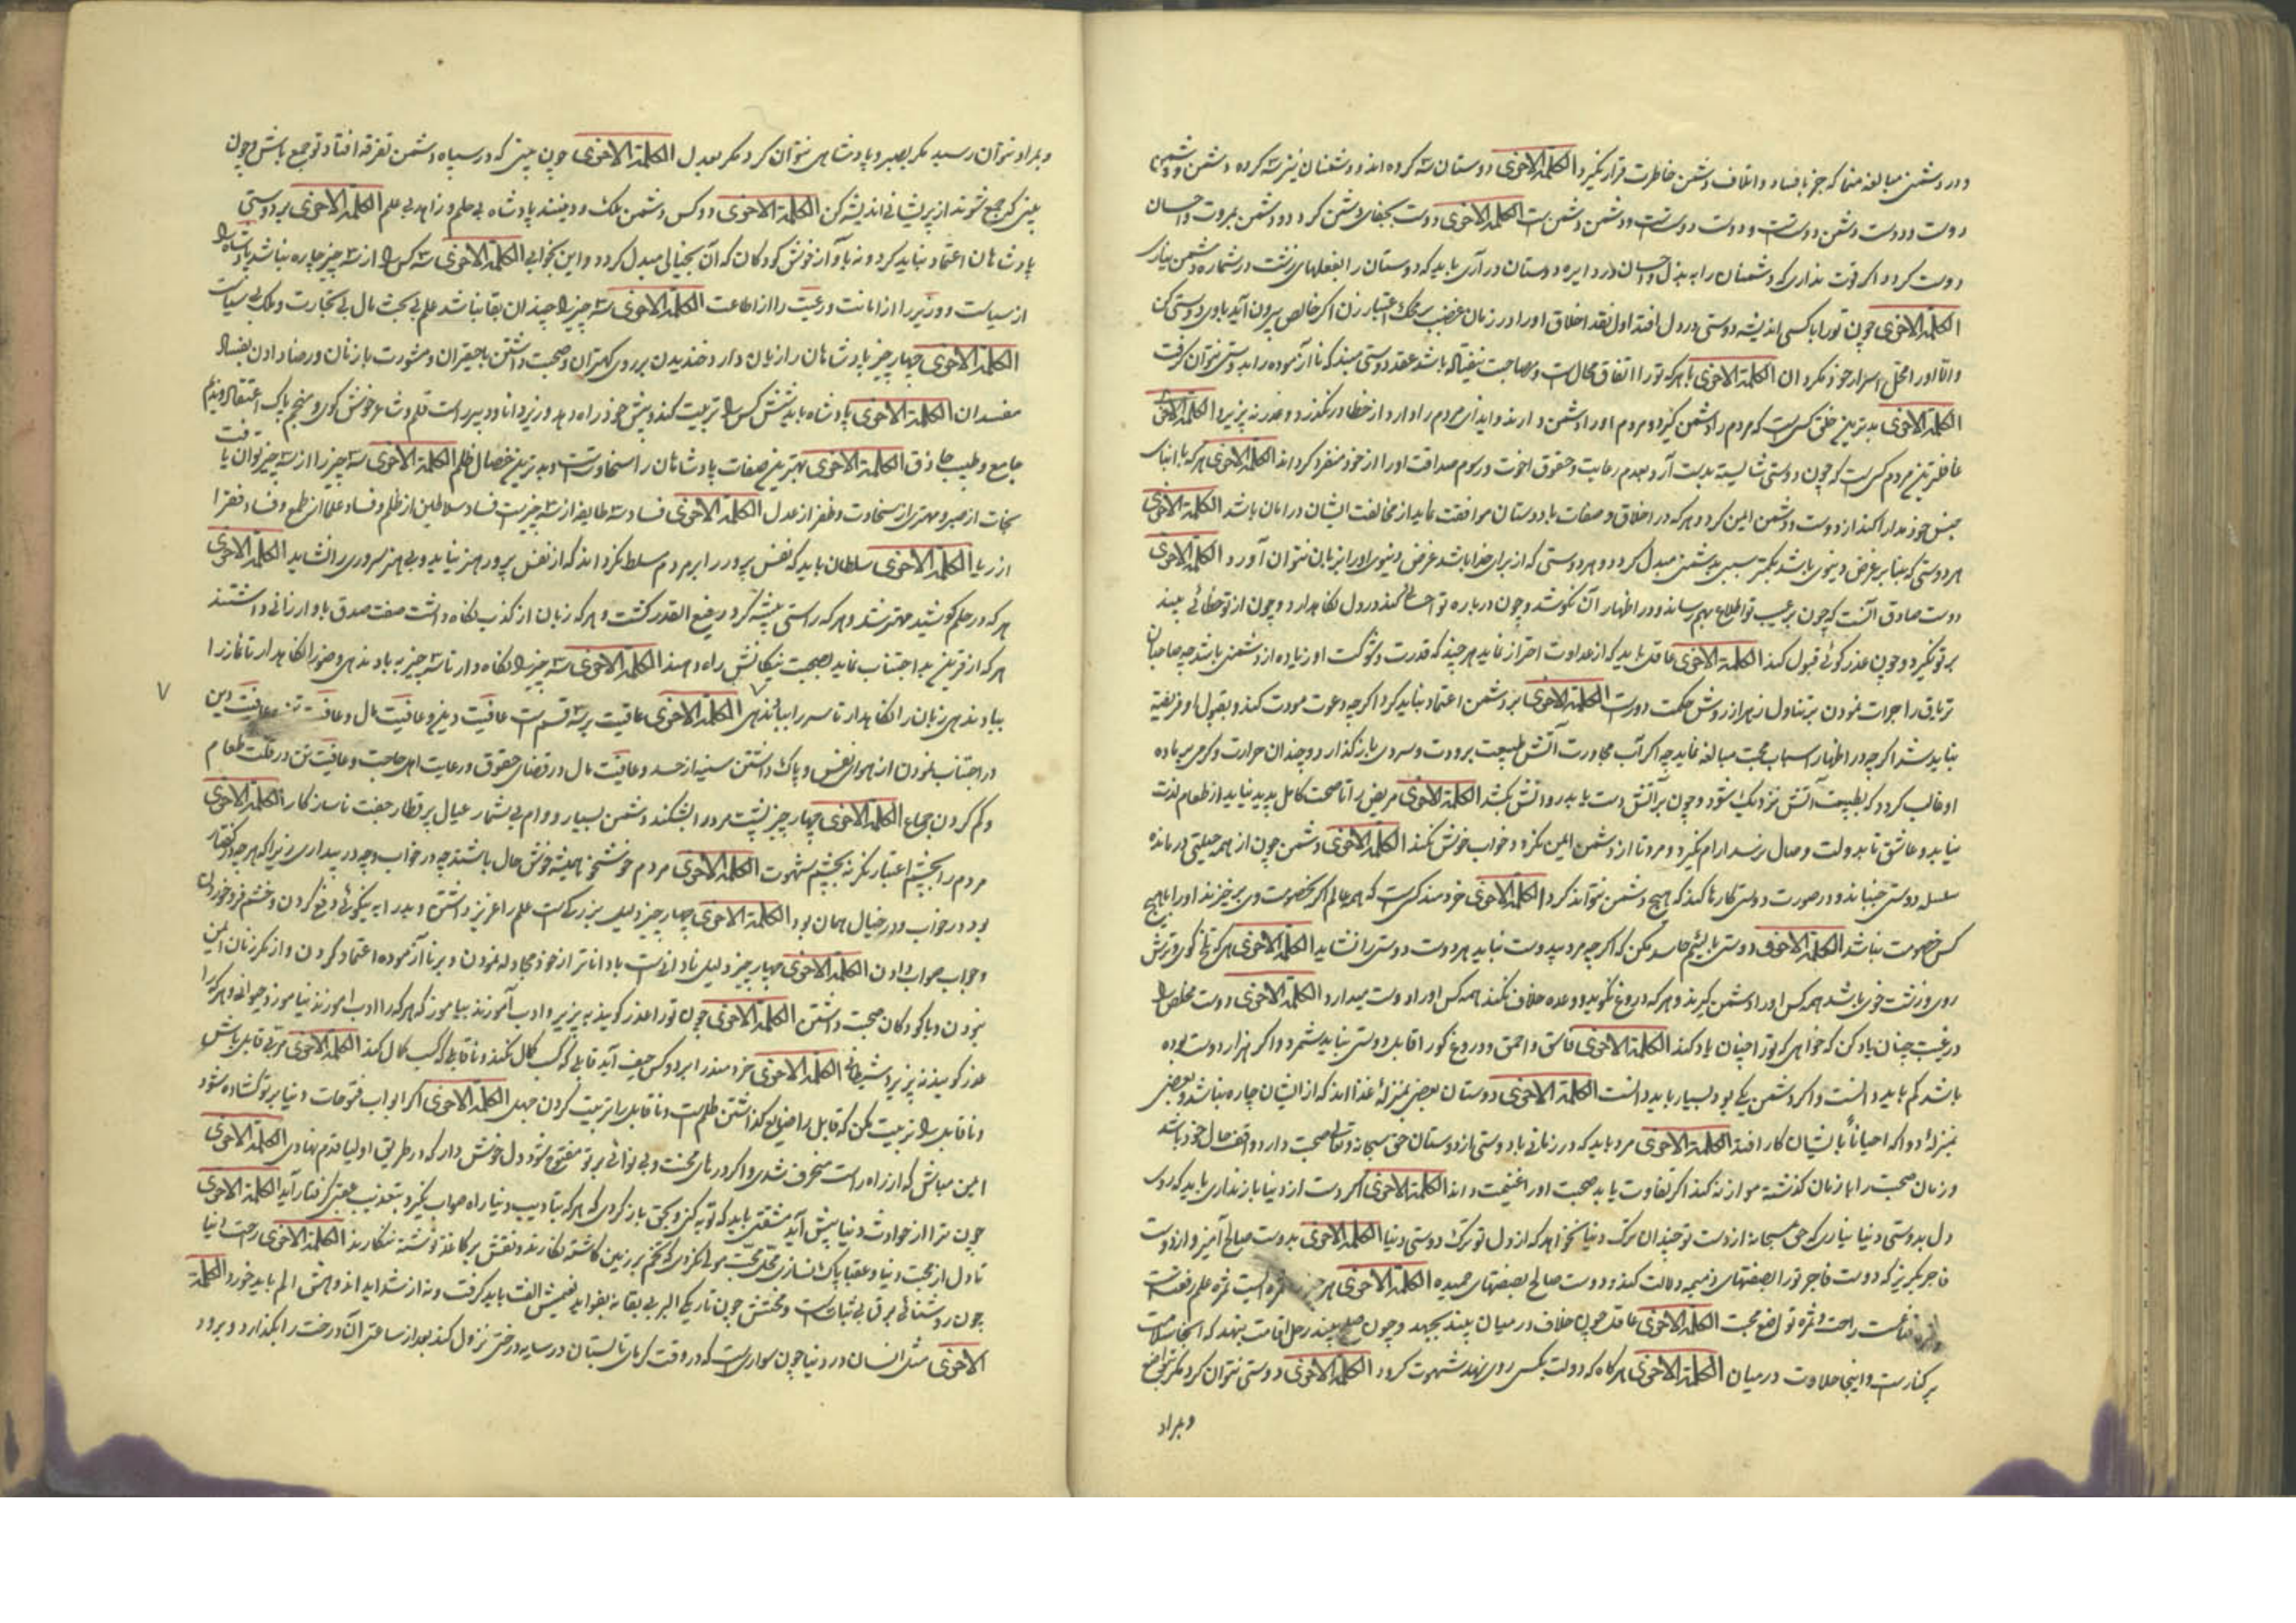 و در دشمنی مبالغه منما که جز بافساد و اتلاف دشمن خاطرت قرار نگیرد الکلمة الاخری دوستان سه کروه اند و دشمنان نیز سه کرده دشمن و دشمن
دوست و دوست دشمن دوستان است و دوست دوست است و دشمن دشمن است الکلمة الاخری دوست بجفای دشمن کردد و دشمن بمروت و احسان
دوست کردد اکر قوت نداری که دشمنان را به بذل و احسان در دایره دوستان در آری باید که دوستان را بفعلهای زشت در شماره دشمن نیاری
الکلمة الاخری چون تو را با کسی اندیشه دوستی در دل افتد اول نقد اخلاق او را در زمان غضب بر محک اعتبار زن اکر خالص بیرون آید با وی دوستی کن
و الا او را محل اسرار خود مکردان الکلمة الاخری با هر که تو را اتفاق محال است و مصاحبت نیفتاده باشد عقد دوستی مبند که نا آزموده را بدوستی نتوان گرفت
الکلمة الاخری بدترین خلق کسی است که مردم را دشمن کیرد و مردم او را دشمن دارند و ایذای مردم روا دارد از خطا در نگذرد و عذر نه پذیرد الکلمة الاخری
غافلترین مردم کسی است که چون دوستی شایسته بدست آرد بعدم رعایت حقوق اخوت و رسوم صداقت او را از خود متنفر کرداند الکلمة الاخری هر که با ابنای
جنس خود مدارا کند از دوست و دشمن ایمن کردد و هر که در اخلاق و صفات با دوستان موافقت نماید از مخالفت ایشان در امان باشد الکلمة الاخری
هر دوستی که بنا بر غرض دنیوی باشد بکمتر سببی بدشمنی مبدل کردد و هر دوستی که از برای خدا باشد غرض دنیوی او را بزیان نتوان آورد الکلمة الاخری
دوست صادق آنست که چون بر عیب تو اطلاع بهم رساند در اظهار آن نکوشد و چون درباره تو احسانی کند در دل نکاهدارد و چون از تو خطائی بیند
بر تو نکیرد و چون عذر کوئی قبول کند الکلمة الاخری عاقل باید که از عداوت احتراز نماید هر چند که قدرت و شوکت او زیاده از دشمن باشد چه صاحبان
تریاق را جرات نمودن بر تناول زهر از روش حکمت دور است الکلمة الاخری بر دشمن اعتماد نباید کرد اگر چه دعوت مودت کند و بقبول او فریفته
نباید شد اکر چه در اظهار اسباب محبت مبالغه نماید چه اکر آب مجاورت آتش طبیعت برودت و سردی باز گذارد و چندان حرارت و گرمی بر ماده
او غالب کردد که بطبیعت آتش نزدیک شود و چون بر آتش دست یابد در ساعت بکشد الکلمة الاخری مریض را تا صحت کامل پدید نیاید از طعام لذت
نیابد و عاشق تا بدولت وصال نرسد آرام نگیرد و مرد تا از دشمن ایمن نکردد خواب خوش نکند الکلمة الاخری دشمن چون از همه حیلتی درماند
سلسله دوستی جنباند و در صورت دوستی کارها کند که هیچ دشمن نتواند کرد الکلمة الاخری خردمند کسی است که همه عالم اکر بخصومت وی برخیزند او را با هیچ
کس خصومت نباشد الکلمة الاخری دوستی با لئیم حاسد مکن که اکر چه مرد بی دوست نباید هر دوست دوستی را نشاید الکلمة الاخری هر که تلخ گوی و ترش
روی و زشت خوی باشد همه کس او را دشمن گیرند و هر که دروغ نگوید و وعده خلاف نکند همه کس او را دوست میدارد الکلمة الاخری دوست مخلص را
در غیبت چنان یاد کن که خواهی که تو را چنان یاد کند الکلمة الاخری فاسق و احمق و دروغ گو را قابل دوستی نباید شمرد و اگر هزار دوست بوده
باشد کم باید دانست و اکر دشمن یکی بود بسیار باید دانست الکلمة الاخری دوستان بعضی بمنزلهٔ غذا اند که از ایشان چاره نباشد و بعضی
بمنزلهٔ دوا که احیاناً بایشان کار افتد الکلمة الاخری مرد باید که در زمانی با دوستی از دوستان حق سبحانه و تعالی صحبت دارد واقف حال خود باشد
و زمان صحبت را با زمان گذشته موازنه کند اکر تفاوت یابد صحبت او را غنیمت داند الکلمة الاخری اکر دست از دنیا باز نداری باید که روی
دل بدوستی دنیا نیاری که حق سبحانه از دست تو چندان ترک دنیا نخواهد که از دل تو ترک دوستی دنیا الکلمة الاخری بدوست صالح آمیز و از دوست
فاجر بگریز که دوست فاجر تو را بصفتهای ذمیمه دلالت کند و دوست صالح بصفتهای حمیده الکلمة الاخری هر چیز را ثمره است ثمره علم رفعت است
قناعت راحت و ثمره تواضع محبت الکلمة الاخری عاقل چون خلاف در میان بیند بجهد و چون صلح بیند رحل اقامت بنهد که آنجا سلامت
بر کنار است و اینجا حلاوت در میان الکلمة الاخری هر گاه که دولت بکسی روی نهد شهوت کردد الکلمة الاخری دوستی نتوان کرد مگر بتواضع
و بمراد
و بمراد نتوان رسید مگر بصبر و پادشاهی نتوان کرد مگر بعدل الکلمة الاخری چون بینی که در سپاه دشمن تفرقه افتاد تو جمع باش و چون
بینی که جمع شوند از پریشانی اندیشه کن الکلمة الاخری دو کس دشمن ملک و دینند پادشاه بی حلم و زاهد بی علم الکلمة الاخری بر دوستی
پادشاهان اعتماد نباید کرد و نه بآواز خوش کودکان که آن بخیالی مبدل کردد و این بخوابی الکلمة الاخری سه کس را از سه چیز چاره نباشد پادشاه را
از سیاست و وزیر را از امانت و رعیت را از اطاعت الکلمة الاخری سه چیز را چندان بقا نباشد علم بی بحث مال بی تجارت و ملک بی سیاست
الکلمة الاخری چهار چیز پادشاهان را زیان دارد خندیدن بر روی کهتران و صحبت داشتن با حقیران و مشورت با زنان و رضا دادن بفساد
مفسدان الکلمة الاخری پادشاه باید شش کس را تربیت کند و پیش خود راه دهد وزیر دانا و دبیر راست قلم و شاعر خوش گوی و منجم پاک اعتقاد و ندیم
جامع و طبیب حاذق الکلمة الاخری بهترین صفات پادشاهان را سخاوت است و بدترین خصال ظلم الکلمة الاخری سه چیز را از سه چیز توان یافت
نجات از صبر و مهتری از سخاوت و ظفر از عدل الکلمة الاخری فساد سه طایفه از سه چیز است فساد سلاطین از ظلم و فساد علما از طمع و فساد فقرا
از ریا الکلمة الاخری سلطان باید که نفس پرور را بر مردم مسلط نگرداند که از نفس پرور هنر نیاید و بی هنر سروری را نشاید الکلمة الاخری
هر که در حلم کوشید مهتر شد و هر که راستی پیشه کرد رفیع القدر گشت و هر که زبان از کذب نگاه داشت صفت صدق باو ارزانی داشتند
هر که از قرین بد اجتناب نماید بصحبت نیکانش راه دهند الکلمة الاخری سه چیز را نگاه دار تا سه چیز به باد ندهی وضو را نگاهدار تا نماز را
بباد ندهی زبان را نگاهدار تا سر را بباد ندهی الکلمة الاخری عافیت بر سه قسم است عافیت دین و عافیت مال و عافیت تن عافیت دین
در اجتناب نمودن از هوای نفس و پاک داشتن سینه از حسد و عافیت مال در قضای حقوق و رعایت اهل حاجت و عافیت تن در قلت طعام
و کم کردن جماع الکلمة الاخری چهار چیز پشت مرد را بشکند دشمن بسیار و وام بی شمار عیال پر قطار جفت ناسازگار الکلمة الاخری
مردم را بچشم اعتبار نگر نه بچشم شهوت الکلمة الاخری مردم خوشخو همیشه خوش حال باشند چه در خواب و چه در بیداری زیرا که هر چه در گفتار
بود در خواب و در خیال همان بود الکلمة الاخری چهار چیز دلیل بزرگی است علم را عزیز داشتن و بد را به نیکوئی دفع کردن و خشم فرو خوردن
و جواب صواب دادن الکلمة الاخری چهار چیز دلیل نادانی است با داناتر از خود مجادله نمودن و بر نا آزموده اعتماد کردن و از مکر زنان ایمن
بودن و با کودکان صحبت داشتن الکلمة الاخری چون تو را عذر گویند به پذیر و ادب آموزند بیاموز که هر که را ادب آموزند نیاموزد حیوانی و هر که را
عذر گویند نه پذیرد شیطانی الکلمة الاخری خردمند را بر دو کس حیف آید قابلی که کسب کمال نکند و ناقابلی که کسب کمال کند الکلمة الاخری مربی قابل باش
و ناقابل را تربیت مکن که قابل را ضایع گذاشتن ظلم است و ناقابل را تربیت کردن جهل الکلمة الاخری اکر ابواب فتوحات دنیا بر تو گشاده شود
ایمن مباش که از راه راست منحرف شدی و اکر درهای محنت و بی نوائی بر تو مفتوح شود دل خوش دار که در طریق اولیا قدم نهادی الکلمة الاخری
چون ترا از حوادث دنیا پیش آید مشقتی باید که توبه کنی و بحق باز گردی که هر که بتادیب دنیا راه صواب نگیرد بتعذیب عقبی گرفتار آید الکلمة الاخری
تا دل از محبت دنیا و عقبا پاک نسازی محل محبت مولی نگردد که تخم بر زمین کاشته نکارند و نقش بر کاغذ نوشته ننگارند الکلمة الاخری راحت دنیا
چون روشنائی برق بی ثبات است و محنتش چون تاریکی ابر بی بقا نه بفواید نعیمش الفت باید گرفت و نه از شداید اندوهش الم باید خورد الکلمة
الاخری مثل انسان در دنیا چون سواری است که در وقت گرمای تابستان در سایه درختی نزول کند بعد از ساعتی آن درخت را بگذارد و برود